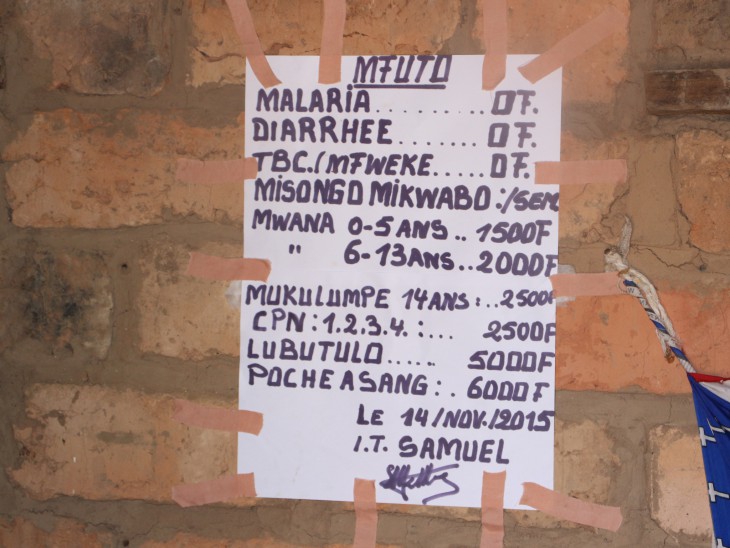 MFUTO
MALARiA........ 0F.
DIARRHEE....... 0F.
TBC./MFWEKE..... 0F.
MISONGO MIKWABO:/SEM
MWANA 0-5ANS.. 1500F
" 6-13ANS..2000F
MUKULUMPE 14ANS:..2500F
CPN:1.2.3.4.:... 2500F
LUBUTULO..... 5000F
POCHE A SANG:. 6000F
LE 14/NOV./2015
I.T. SAMUEL